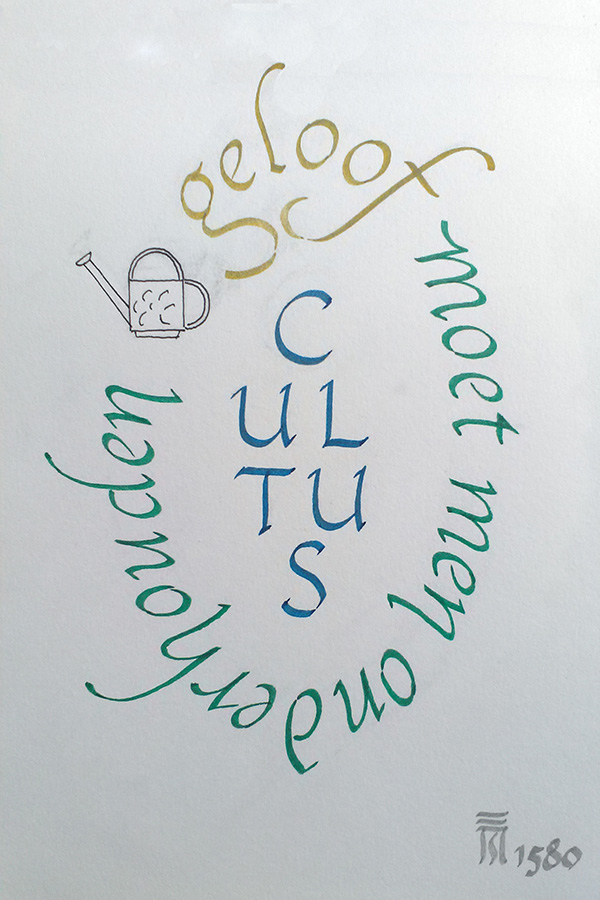 geloof
moet men onderhouden
C
UL
TU
S
1580